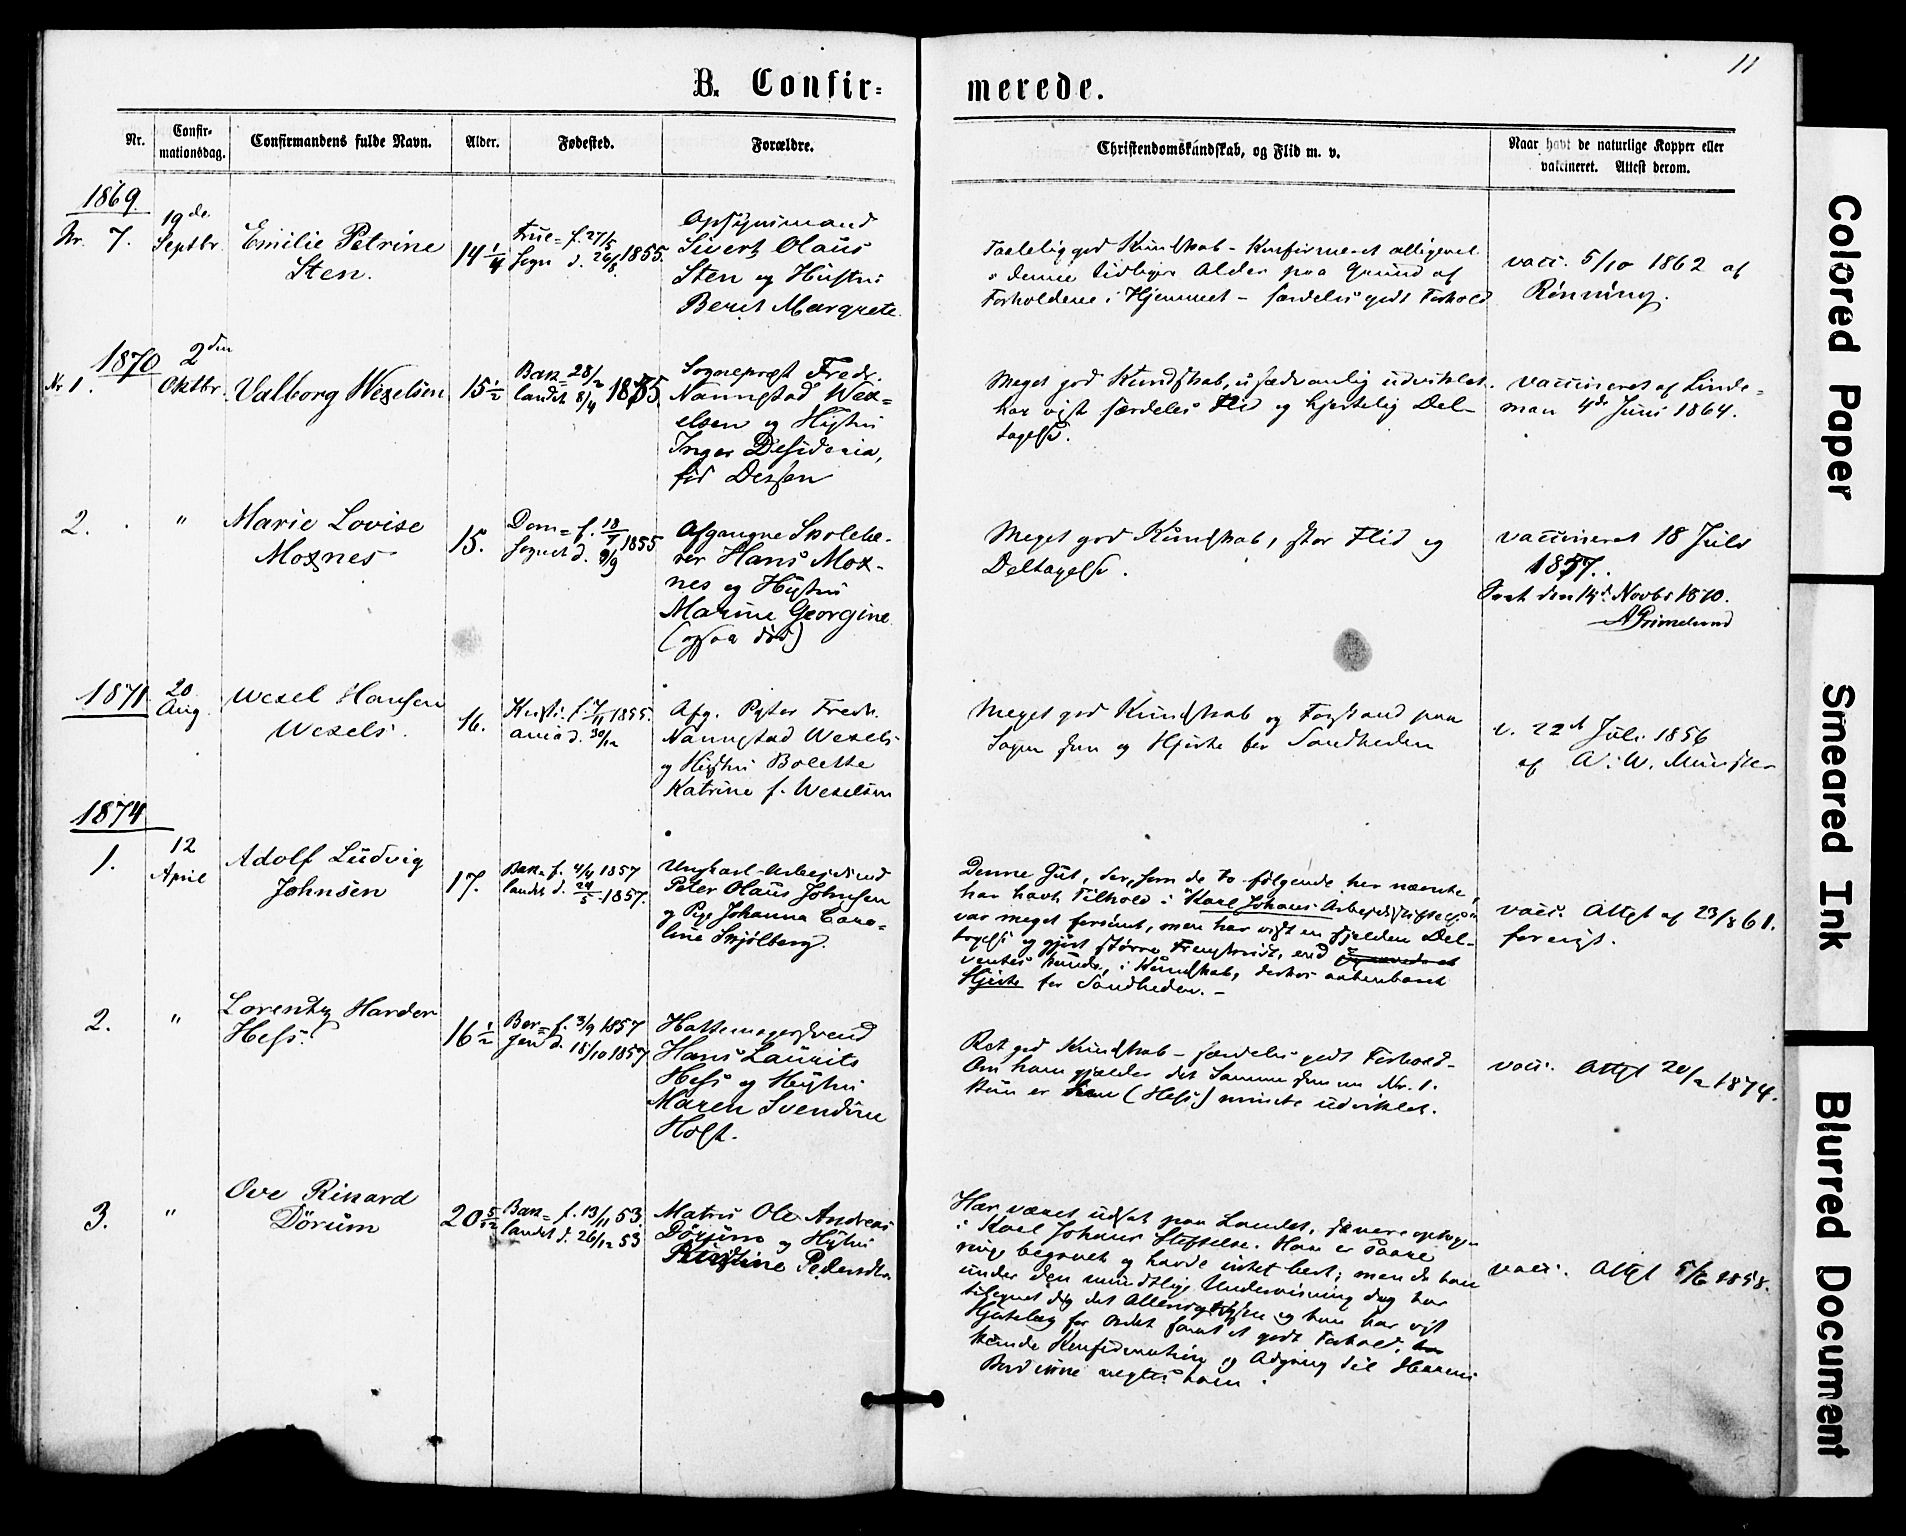 11
B. Confir=
merede.
Nr.
Confir=
mationsdag.
Confirmandens fulde Navn.
Alder.
Fødested.
Forældre.
Christendomskundskab, og Flid m. v.
Naar havt de naturlige Kopper eller
vakcineret. Attest derom.
1869.
Nr. 7.
19de
Septbr
Emilie Petrine
Sten.
14 1/4
frue= f. 27/5
Sogn d. 26/8 1855.
Opsynsmand
Sivert Olaus
Sten og Hustru
Berit Margrete
Taalelig god Kundskab - Konfirmeret alligevel
i denne tidlige Alder paa Grund af
Forholdene i Hjemmet - særdeles godt Forhold
vacc. 5/10 1862 af
Rönning.
1870
Nr 1.
2den
Oktbr.
Valborg Wexelsen
15 1/2
Bak= 28/2
landet 8/4 1855.
Sognepræst Fredr.
Nannestad Wex=
elsen og Hustru
Inger Desideria,
Meget god Kundskab, usædvanlig udviklet.
har vist særdeles Flid og hjertelig Del-
tagelse.
vaccineret af Linde=
man 4de Juni 1864.
2.
"
Marie Lovise
Moxnes
15.
Dom= f. 18/7
Sognet d. 9/9 1855
Afgangne Skolelæ-
rer Hans Mox-
nes og Hustru
Marine Georgine
(ogsaa död)
Meget god Kundskab, stor Flid og
Deltagelse.
vaccineret 18 Juli
1857.
den 14d Novbr 1870.
AGrimelund
1871
20
Aug.
Wexel Hansen
Wexels.
16.
Kristi= f. 7/11 1855.
ania d. 30/12
Afg. Pastor Fredr.
Nannestad Wexels
og Hustru Bolette
Katrine f. Wexelsen
Meget god Kundskab og Forstand paa
Sagen som og Hjerte for Sandheden
v. 22d Juli 1856
af A. W. Münster
1874
1.
12
April
Adolf Ludvig
Johnsen
17.
Bak= f. 4/4 1857
landet d. 24/5 1857.
Ungkarl-Arbejdsmd
Peter Olaus Johnsen
og Pige Johanna Caro=
line Skjölberg.
Denne Gut, der, som de to følgende her nævnte,
har havt Tilhold i "Karl Johans Arbejdsstiftelse"
var meget forsömt, men har vist en sjelden Del-
tagelse og gjort større Fremskridt, end
ventes kunde, i Kundskab, derhos aabenbaret
Hjerte for Sandheden. -
vacc. Attest af 23/8 61.
forevist.
2.
"
Lorentz Harder
Hess.
16 1/2
Ber= f. 3/9 1857
gen d. 18/10 1857
Hattemagersvend
Hans Laurits
Hess og Hustru
Maren Svendine
Holst.
Ret god Kundskab - særdeles godt Forhold-
Om ham gjælder det Samme som om Nr. 1.
kun er han (Hess) mindre udviklet.
vacc. Attest 20/2 1874.
3.
"
Ove Rikard
Dörum
20 5/12
Bak= f. 13/11 53.
landet d. 26/12 53
Matros Ole Andreas
Dörum og Hustru
Kristine Pedersdtr
Har været udsat paa Landet, senere optagen
i Karl Johans Stiftelse. Han er saare
ringe begavet og havde intet lært; men da han
under den mundtlige Undervisning dog har
tilegnet sig det Allervigtigste og han har vist
Hjertelag for Ordet samt et godt Forhold,
kunde Konfirmation og Adgang til Herrens
Bord ikke negtes ham.
vacc. Attest 5/6 1858.
Colored Paper
Smeared Ink
Blurred Document